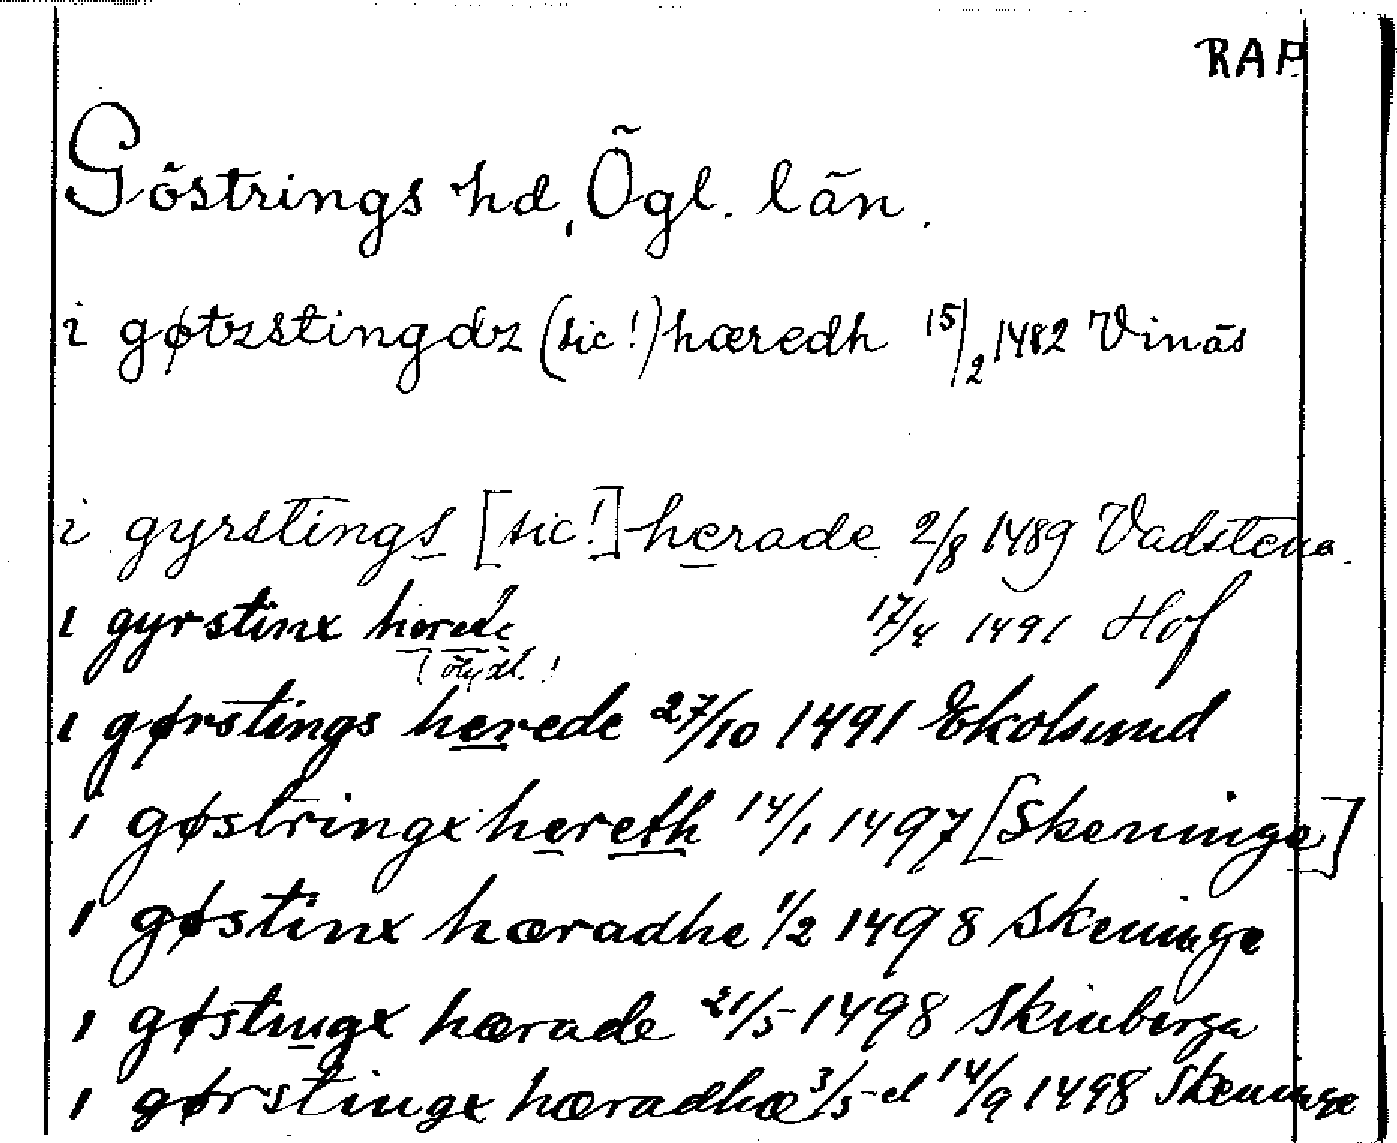 RAP
Göstrings hd, Ögl. län.
i gøtzstingdz (sic!) hæredh 15/2 1482 Vinäs
i gyrstings [sic!] herade 2/8 1489 Vadstena.
i gyrstinx herede 17/4 1491 Hof
(otydl.!)
i gørstings herede 27/10 1491 Ekolsund
i gøstringx hereth 14/1 1497 [Skeninge]
i gøstinx hæradhe 1/2 1498 Skeninge
i gøstingx hærade 21/5 1498 Skineberga
i gørstingx hæradhæ 3/5 el 14/9 1498 Skeninge